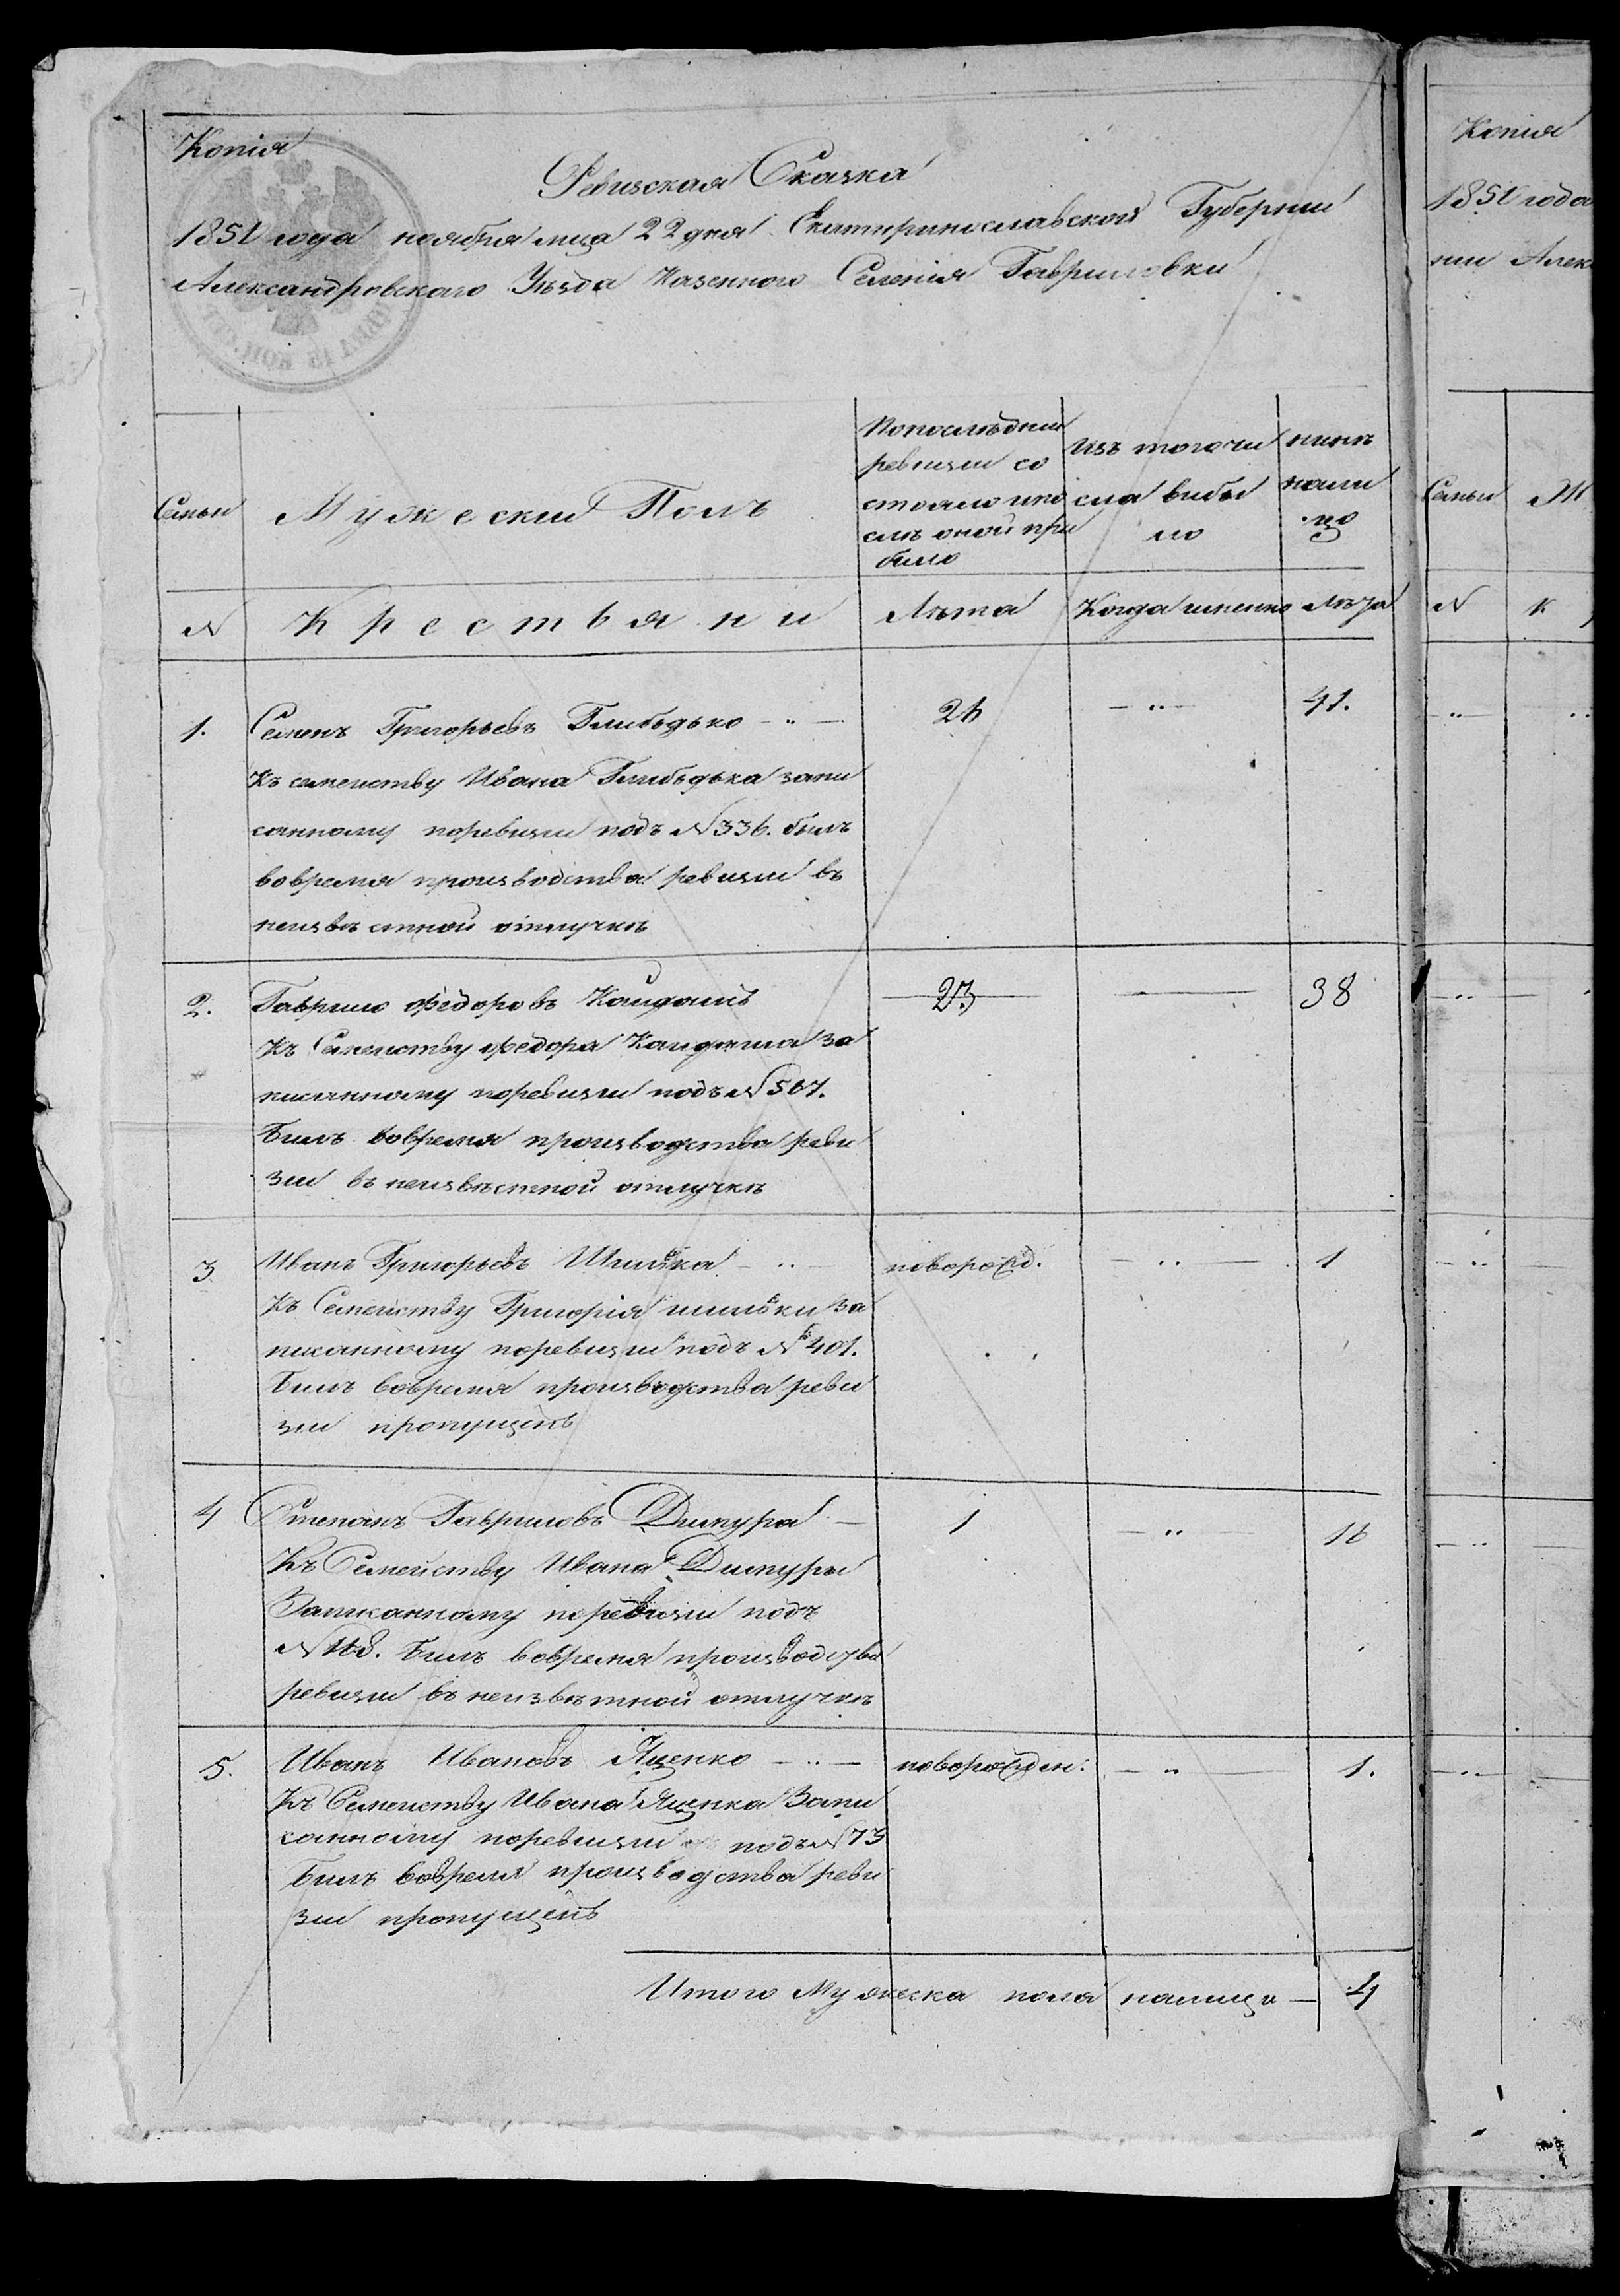 Копія
Ревизская Сказка
1851 года ноября мца 22 дня Екатеринославской Губерніи
Александровского Уѣзда Казенного Селенія Гавриловки
Семьи
Мужескій Полъ
Попослѣдней
ревизіи со
стояло ипо
слѣ оной при
было
Изъ того чи
сла выбы
ло
нинѣ
нали
цо
N
Крестьяни
Лѣта
Когда именно
Лѣта
1.
Семенъ Григорьевъ
26
41.
Къ семейству Ивана запи
санному поревизіи подъ N 336. былъ
вовремя производства ревизіи въ
неизвѣстной отлучкѣ
2.
Гаврило Федоровъ Кайдашъ
23
38
Къ Семейству Федора Кайдаша за
писанному поревизіи подъ N 567.
Билъ вовремя производства реви
зіи въ неизвѣстной отлучкѣ
3
Иванъ Григорьевъ
новорожд.
1
Къ Семейству Григорія за
писанному поревизіи подъ N 401.
Билъ вовремя производства реви
зіи пропущенъ
4
Степанъ Гавриловъ
1
16
Къ Семейству Ивана
Записанному поревизіи подъ
Билъ вовремя производства
ревизіи въ неизвѣстной отлучкѣ
5.
Иванъ Ивановъ Яценко
новорожден:
1.
Къ Семейству Ивана Яценка Запи
санному поревизіи подъ N 73
Билъ вовремя производства реви
зіи пропущенъ
Итого Мужеска пола налицо
4
Копія
1851 года
ніи Алек
Семьи
Ж
N
К